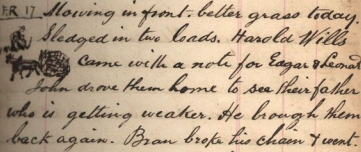 FR 17. Mowing in front. better grass today.
Sledged in two loads. Harold Wills
came with a note for Edgar & Leonard
John drove them home to see their father
who is getting weaker. He brough them
back again. Bran broke his chain & went